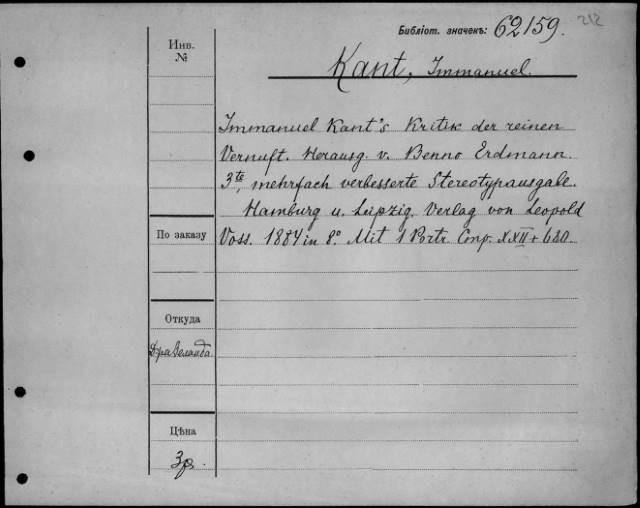 Библіот. значекъ: 62159.
212
Инв.
№
Kant, Immanuel.
Immanuel Kant's Kritik der reinen
Vernuft. Herausg. v. Benno Erdmann.
3te, mehrfach verbesserte Stereotypausgabe.
Hamburg u. Leipzig. Verlag von Leopold
По заказу
Voss. 1884 in 8º. Mit 1 Portr. Стр. XXII + 680.
Откуда
Цѣна
3р.